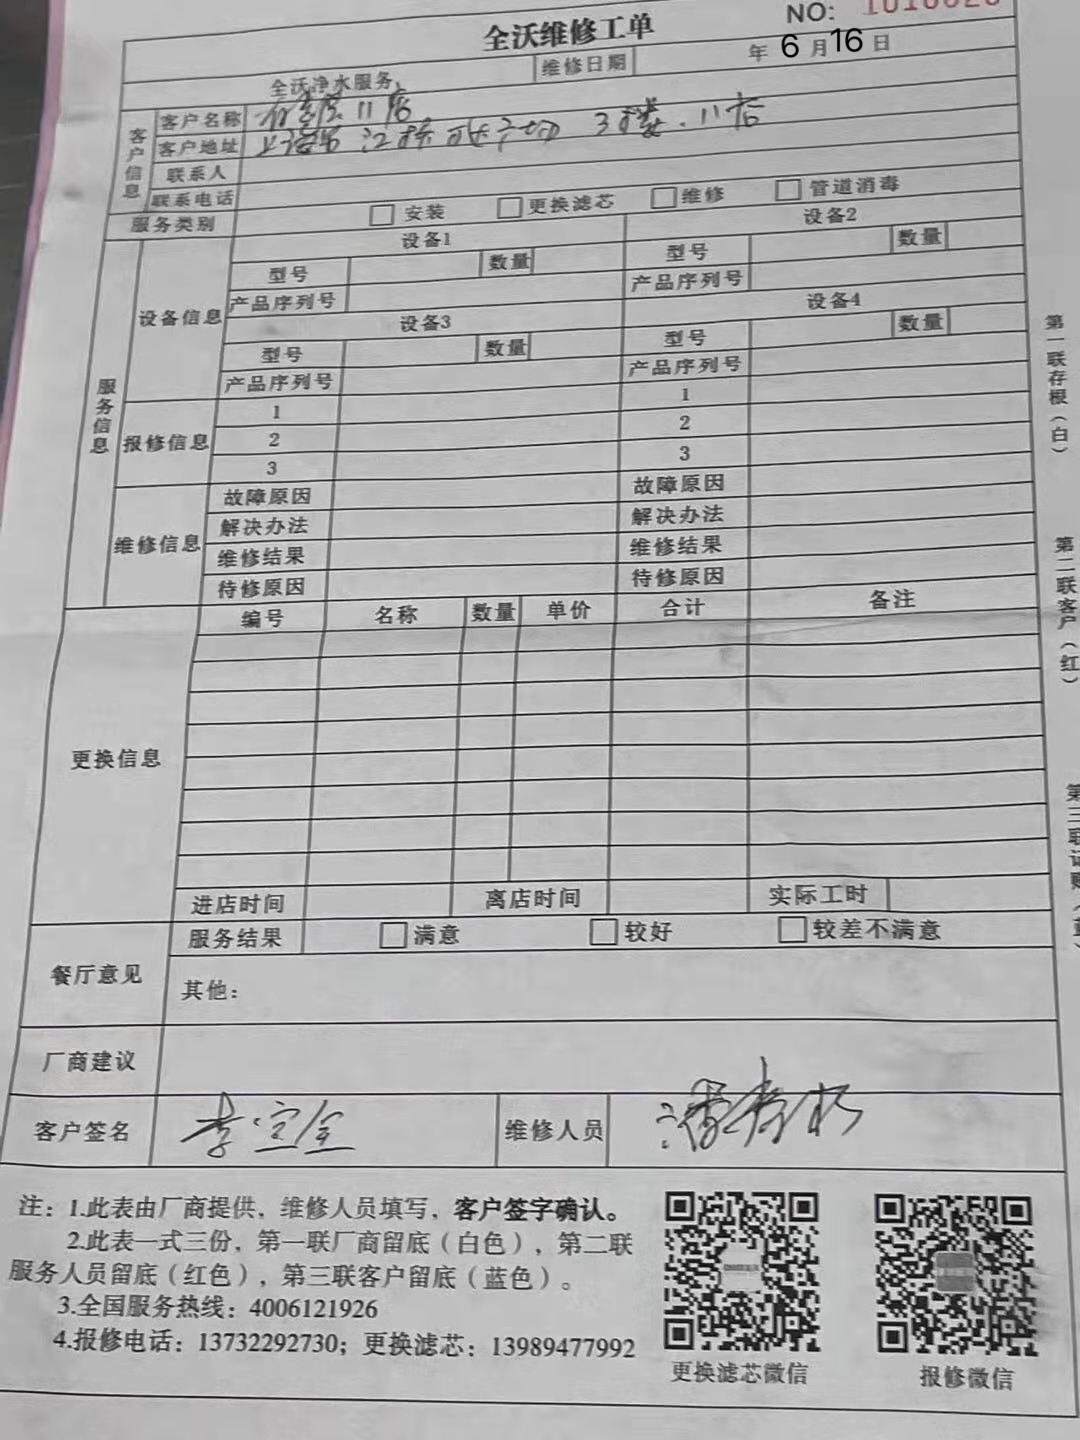 NO:
全沃维修工单
全沃净水服务
维修日期
年 6 月 16 日
客户信息
客户名称 11店
客户地址 3楼.11店
联系人
联系电话
服务类别 安装 更换滤芯 维修 管道消毒
服务信息
设备信息
设备1 设备2
型号 数量 型号 数量
产品序列号 产品序列号
设备3 设备4
型号 数量 型号 数量
产品序列号 产品序列号
报修信息
1 1
2 2
3 3
维修信息
故障原因 故障原因
解决办法 解决办法
维修结果 维修结果
待修原因 待修原因
更换信息
编号 名称 数量 单价 合计 备注
进店时间 离店时间 实际工时
餐厅意见
服务结果 满意 较好 较差不满意
其他：
厂商建议
客户签名 李宝全 维修人员
注：1.此表由厂商提供，维修人员填写，客户签字确认。
2.此表一式三份，第一联厂商留底（白色），第二联
服务人员留底（红色），第三联客户留底（蓝色）。
3.全国服务热线：4006121926
4.报修电话：13732292730；更换滤芯：13989477992
更换滤芯微信
报修微信
第一联存根（白）
第二联客户（红）